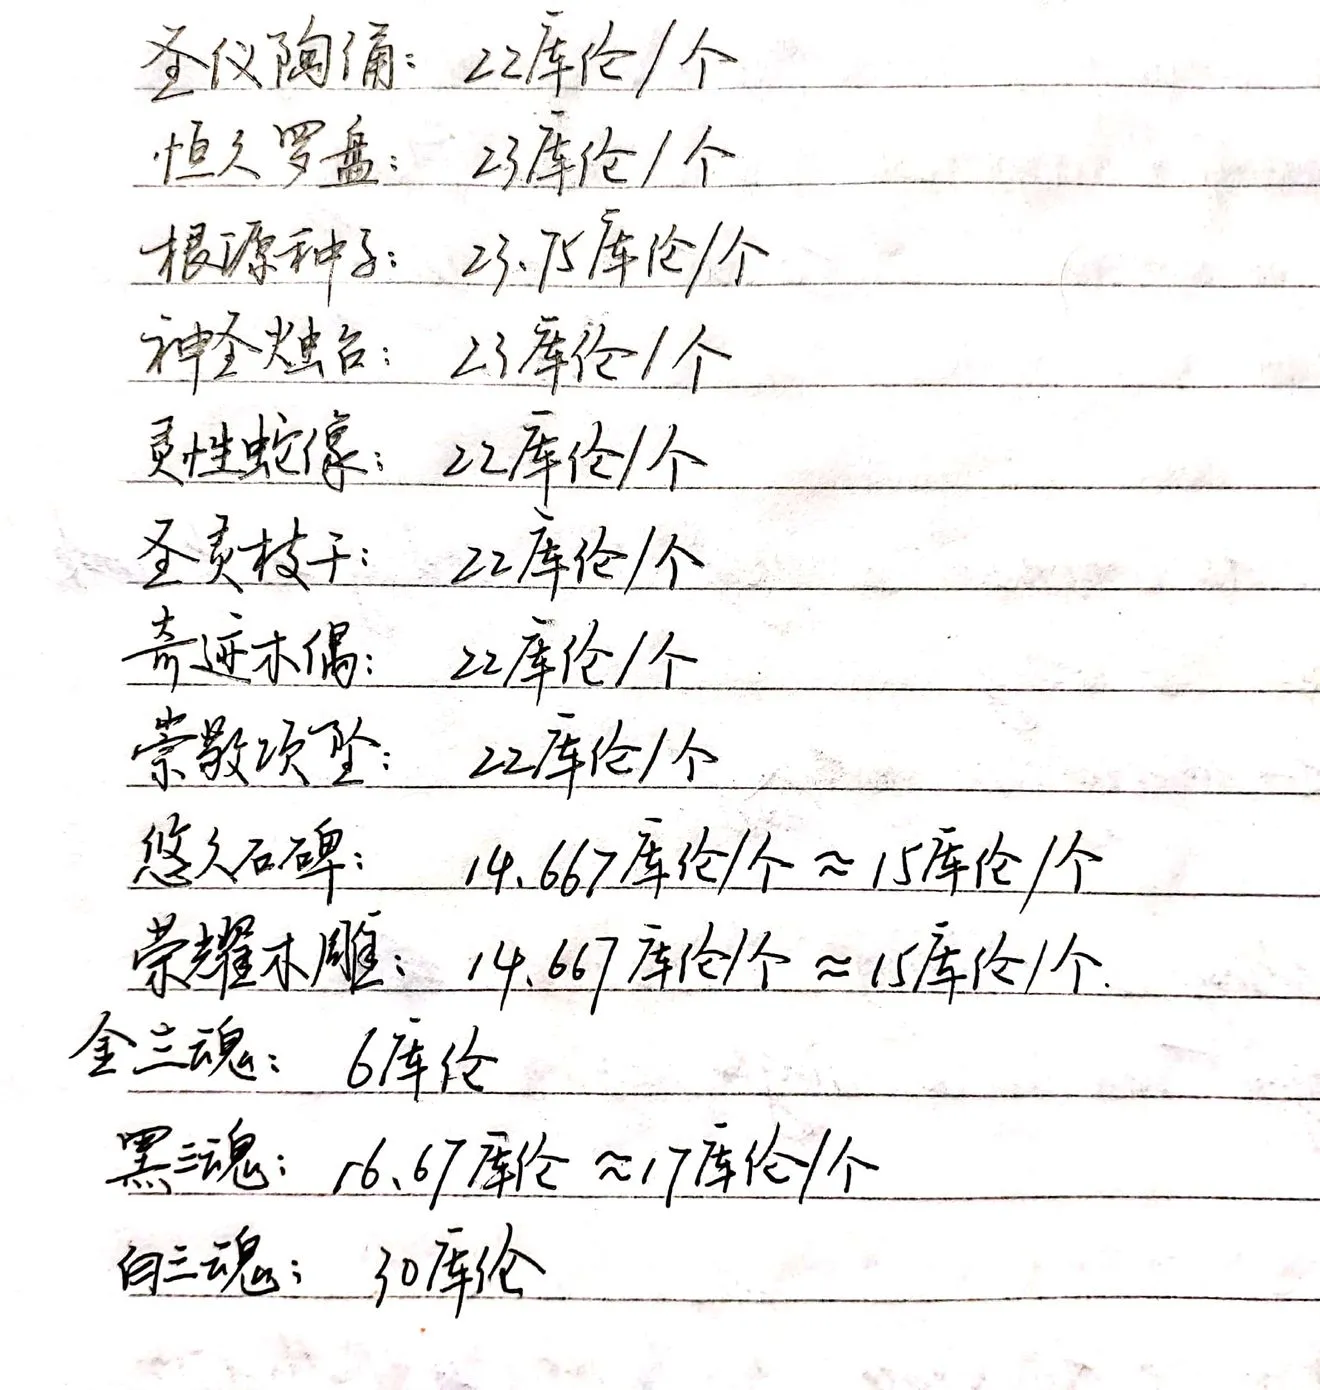 圣仪陶俑: 22库伦/个
恒久罗盘: 23库伦/个
根源种子: 23.75库伦/个
神圣烛台: 23库伦/个
灵性蛇像: 22库伦/个
圣灵枝干: 22库伦/个
奇迹木偶: 22库伦/个
崇敬项坠: 22库伦/个
悠久石碑: 14.667库伦/个≈15库伦/个
荣耀木雕: 14.667库伦/个≈15库伦/个.
金三魂: 6库伦
黑三魂: 16.67库伦≈17库伦/个
白三魂: 30库伦